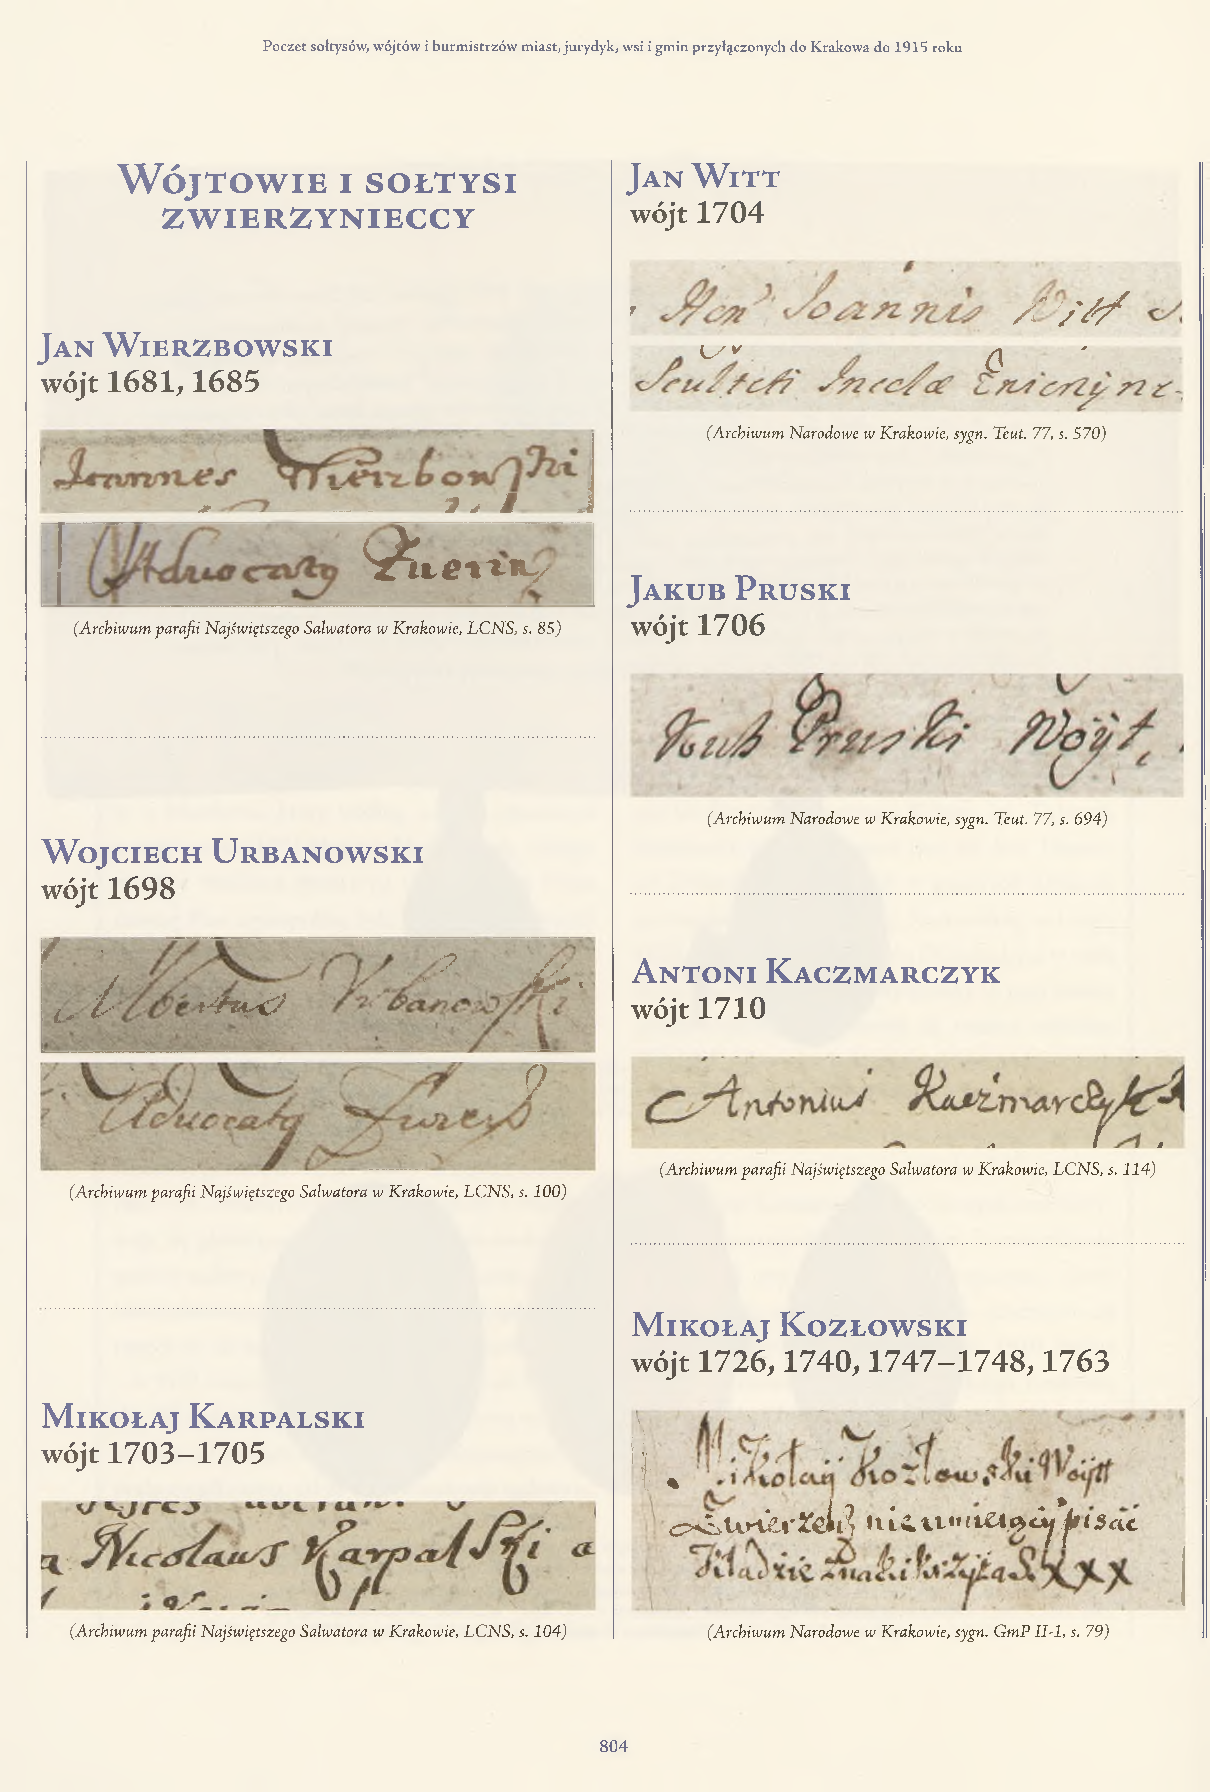 Poczet sołtysów, wójtów i burmistrzów miast, jurydyk, wsi i gmin przyłączonych do Krakowa do 1915 roku
Wójtowie i sołtysi
zwierzynieccy
Jan Wierzbowski
wójt 1681, 1685
Joannes Wierzbowski
Advocatg Zuerin
(Archiwum parafii Najświętszego Salwatora w Krakowie, LCNS, s. 85)
Wojciech Urbanowski
wójt 1698
Albertus Vrbanowski
Advocatg
(Archiwum parafii Najświętszego Salwatora w Krakowie, LCNS, s. 100)
Mikołaj Karpalski
wójt 1703–1705
Nicolaus Karpalski
(Archiwum parafii Najświętszego Salwatora w Krakowie, LCNS, s. 104)
Jan Witt
wójt 1704
Hon Joannis Witt
Sculteti
(Archiwum Narodowe w Krakowie, sygn. Teut. 77, s. 570)
Jakub Pruski
wójt 1706
Pruski Woÿt
(Archiwum Narodowe w Krakowie, sygn. Teut. 77, s. 694)
Antoni Kaczmarczyk
wójt 1710
Antonius Kaczmarczyk
(Archiwum parafii Najświętszego Salwatora w Krakowie, LCNS, s. 114)
Mikołaj Kozłowski
wójt 1726, 1740, 1747–1748, 1763
Mikołaÿ Kozłowski Woÿtt
nie umieiący pisać
Kładzie znaki krzyża S. XXX
(Archiwum Narodowe w Krakowie, sygn. GmP II-1, s. 79)
804